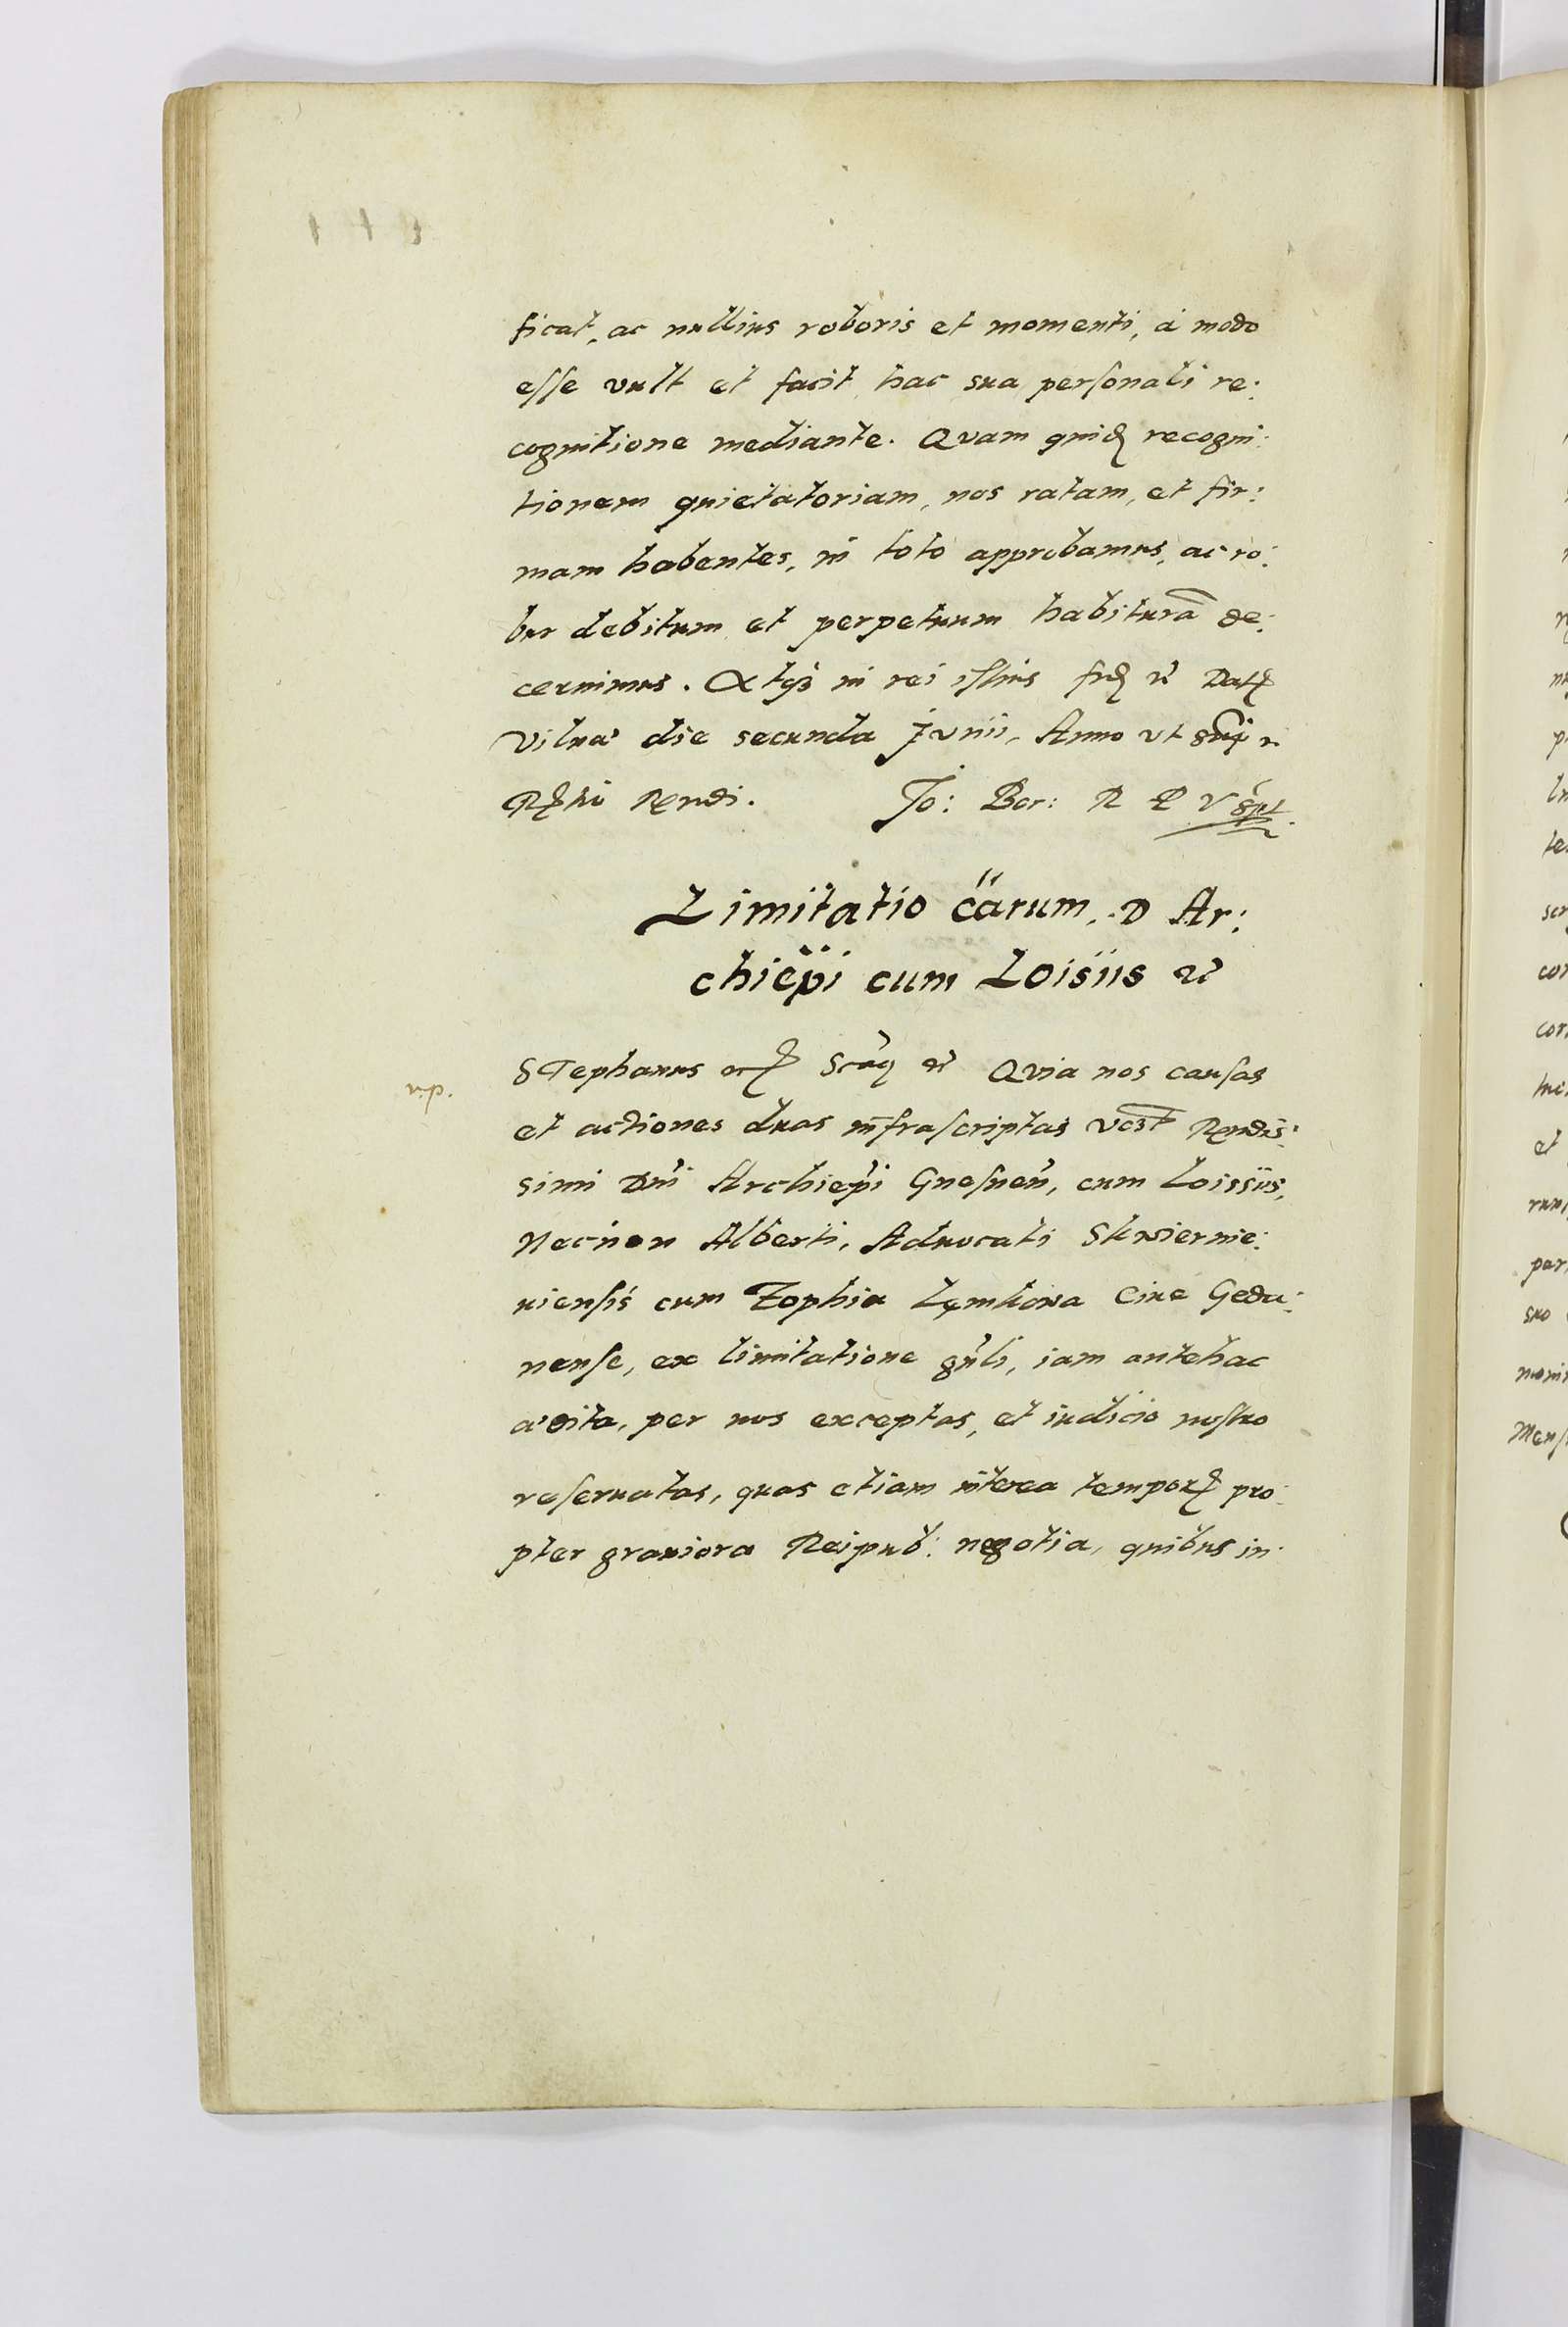 ficat, ac nullius roboris et momenti, à modo
esse vult et facit, hac sua personali re:
cognitione mediante. Quam quid recogni:
tionem quietatoriam, nos ratam, et fir:
mam habentes, in toto approbamus, ac ro:
bur debitum et perpetuum habiturã de:
cernimus. In rei istius
Vilnæ die secunda Junii, Anno vt
Rndi. Jo: Bor: R P V
Limitatio cãrum. D Ar:
chiepi cum Loisiis
Stephanus Quia nos causas
et actiones duas infrascriptas Rendis:
simi Dni Archiepi Gnesnen, cum Loissiis,
Necnon Alberti, Aduocati Skwiernie:
uiensis cum Zophia Lęmkowa Ciue Geda:
nense, ex limitatione gnli, iam antehac
ædita, per nos exceptas, et iudicio nostro
reseruatas, quas etiam interea tempor pro:
pter grauiora Reipub: negotia, quibus in: